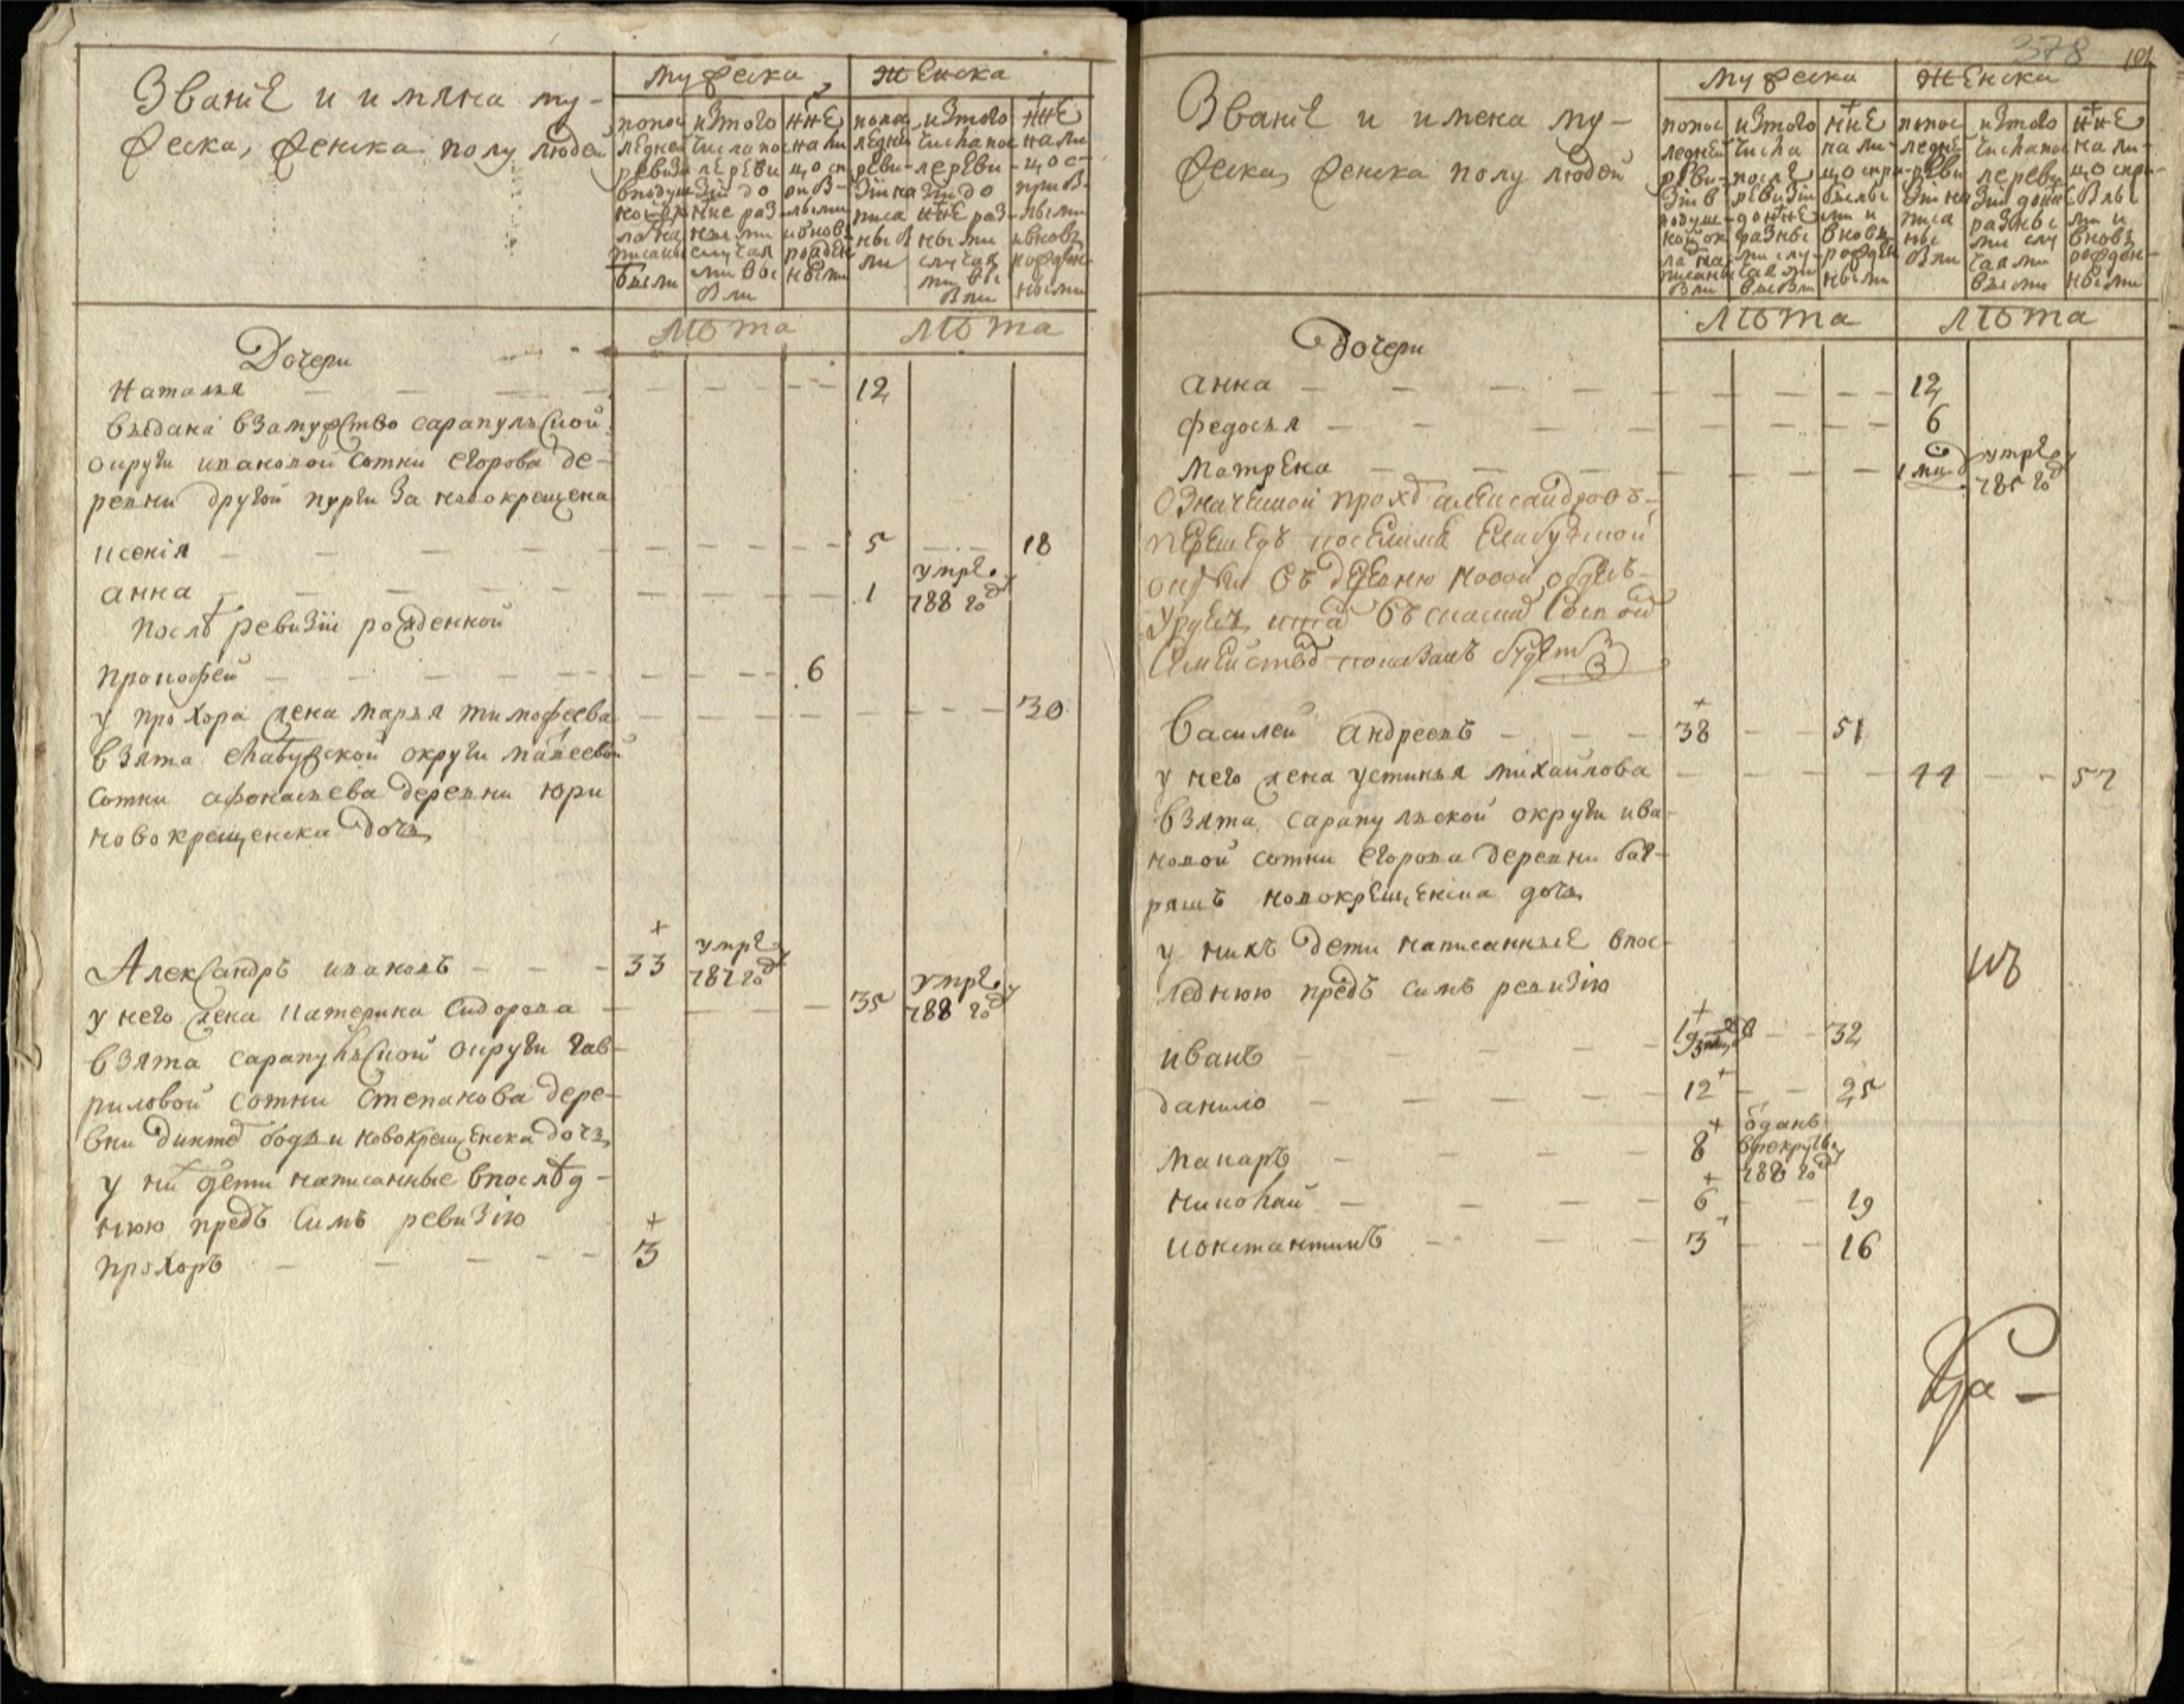 Званiе и имяна му-
жеска, женска полу людей
мужеска
женска
попос
ледней
ревизи
в подуш
ной ок
лад на
писаны
были
из того
числа по
сле реви
зiи до
нне раз
ными
случая
ми вы
были
нне
на ли
цо с п
рибы
лыми
и внов
рожден
ными
попос
ледней
реви
зiи на
писа
ны бы
ли
из того
числа пос
ле реви
зiи до
нне раз
ными
случая
ми вы
были
нне
на ли
цо с
прибы
лыми
и вновь
рожден
ными
лѣта
лѣта
Дочери
Наталья 12
выдана в замужство сарапульской
округи ивановой сотни егорова де-
ревни другой пурги за новокрещена
ксенiя 5 18
анна 1 умре 788 году
послѣ ревизiи рожденной
прокофей 6
у прохора жена марья тимофеева 30
взята елабужской округи
сотни афонасьева деревни юри
новокрещенска дочь
Александръ ивановъ 33 умре 787 году
у него жена катерина сидорова 35 умре 788 году
взята сарапульской округи гав-
риловой сотни степанова дере-
вни бодьи новокрещенска дочь
у них дети написанные в послѣд-
нюю предъ симъ ревизiю
прохоръ 3
378
Званiе и имена му-
жеска, женска полу людей
мужеска
женска
попос
ледней
реви
зiи в
подуш
ной ок
лад на
писаны
были
из того
числа
после
ревизiи
до нне
разны
ми слу
чаями
выбыли
нне
на ли
цо с при
былы
ми и
вновь
рожден
ными
попос
ледней
реви
зiи на
писа
ны
были
из того
числа пос
ле реви
зiи до нне
разны
ми слу
чаями
выбыли
нне
на ли
цо с при
былы
ми и
вновь
рожден
ными
лѣта
лѣта
Дочери
анна 12
федосья 6
матрена 1 умре 785 году
означеной прохор александровъ
перешедъ на елабужской
округи въ деревню новой
въ
семейством показанъ будетъ
василей андреевъ 38 51
у него жена устинья михайлова 44 57
взята сарапульской округи ива-
новой сотни егорова деревни баг-
рашъ новокрещенска дочь
у нихъ дети написанные в пос-
леднюю предъ симъ ревизiю
иванъ 19 32
данило 12 25
макаръ 8 отданъ в рекруты 788 году
николай 6 19
константинъ 3 16